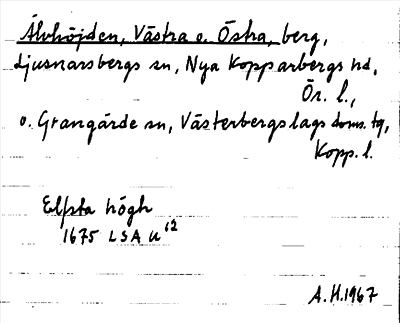 Älvhöjden, Västra o. Östra, berg,
Ljusnarsbergs sn, Nya Kopparbergs hd,
Ör. l.,
o. Grangärde sn, Västerbergslags doms. tg,
Kopp. l.
Elfsta högh
1675 LSA u 12
A.H. 1967